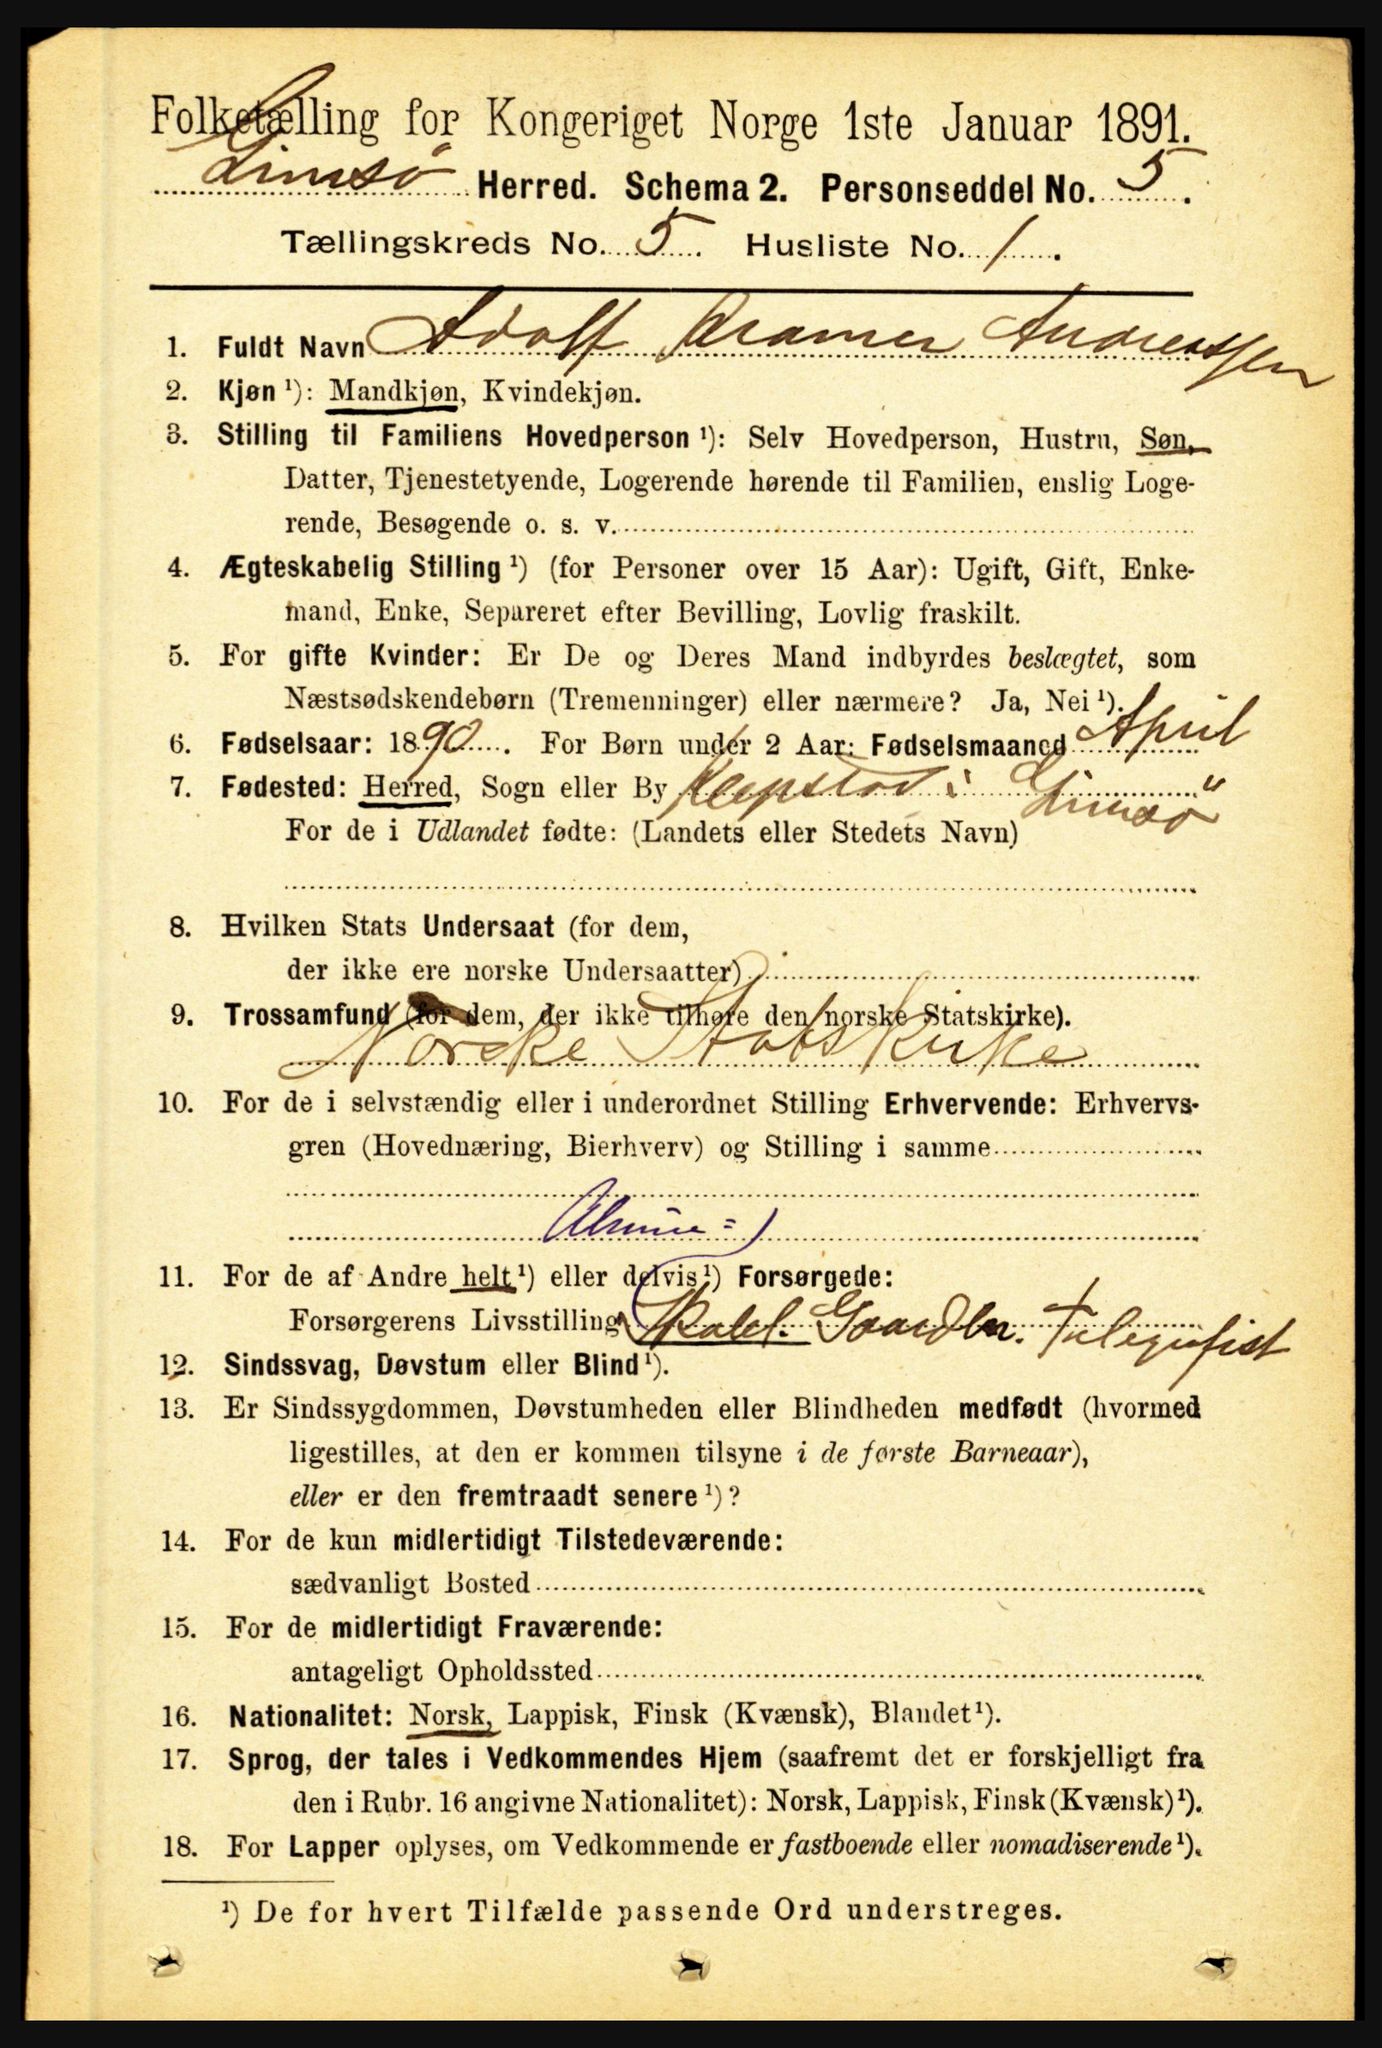 Folketælling for Kongeriget Norge 1ste Januar 1891.
Gimsø Herred. Schema 2. Personseddel No. 5.
Tællingskreds No. 5. Husliste No. 1.
1. Fuldt Navn Adolf Kramer Andreassen
2. Kjøn ¹): Mandkjøn, Kvindekjøn.
3. Stilling til Familiens Hovedperson ¹): Selv Hovedperson, Hustru, Søn,
Datter, Tjenestetyende, Logerende hørende til Familien, enslig Loge-
rende, Besøgende o. s. v.
4. Ægteskabelig Stilling ¹) (for Personer over 15 Aar): Ugift, Gift, Enke-
mand, Enke, Separeret efter Bevilling, Lovlig fraskilt.
5. For gifte Kvinder: Er De og Deres Mand indbyrdes beslægtet, som
Næstsødskendebørn (Tremenninger) eller nærmere? Ja, Nei ¹).
6. Fødselsaar: 1890. For Børn under 2 Aar: Fødselsmaaned April
7. Fødested: Herred, Sogn eller By Klepstad i Gimsø
For de i Udlandet fødte: (Landets eller Stedets Navn)
8. Hvilken Stats Undersaat (for dem,
der ikke ere norske Undersaatter)
9. Trossamfund (for dem, der ikke tilhøre den norske Statskirke).
Norske Statskirke
10. For de i selvstændig eller i underordnet Stilling Erhvervende: Erhvervs-
gren (Hovednæring, Bierhverv) og Stilling i samme
11. For de af Andre helt ¹) eller delvis ¹) Forsørgede:
Forsørgerens Livsstilling Gaardbr.
12. Sindssvag, Døvstum eller Blind ¹).
13. Er Sindssygdommen, Døvstumheden eller Blindheden medfødt (hvormed
ligestilles, at den er kommen tilsyne i de første Barneaar),
eller er den fremtraadt senere ¹)?
14. For de kun midlertidigt Tilstedeværende:
sædvanligt Bosted
15. For de midlertidigt Fraværende:
antageligt Opholdssted
16. Nationalitet: Norsk, Lappisk, Finsk (Kvænsk), Blandet ¹).
17. Sprog, der tales i Vedkommendes Hjem (saafremt det er forskjelligt fra
den i Rubr. 16 angivne Nationalitet): Norsk, Lappisk, Finsk (Kvænsk) ¹).
18. For Lapper oplyses, om Vedkommende er fastboende eller nomadiserende ¹).
¹) De for hvert Tilfælde passende Ord understreges.